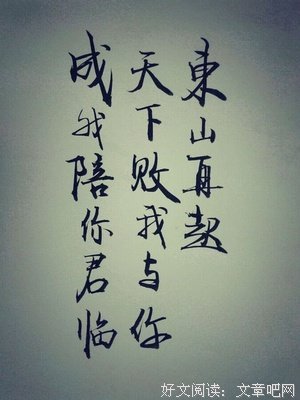 成我陪你君临
天下败我与你
東山再起
好文阅读：文章吧网